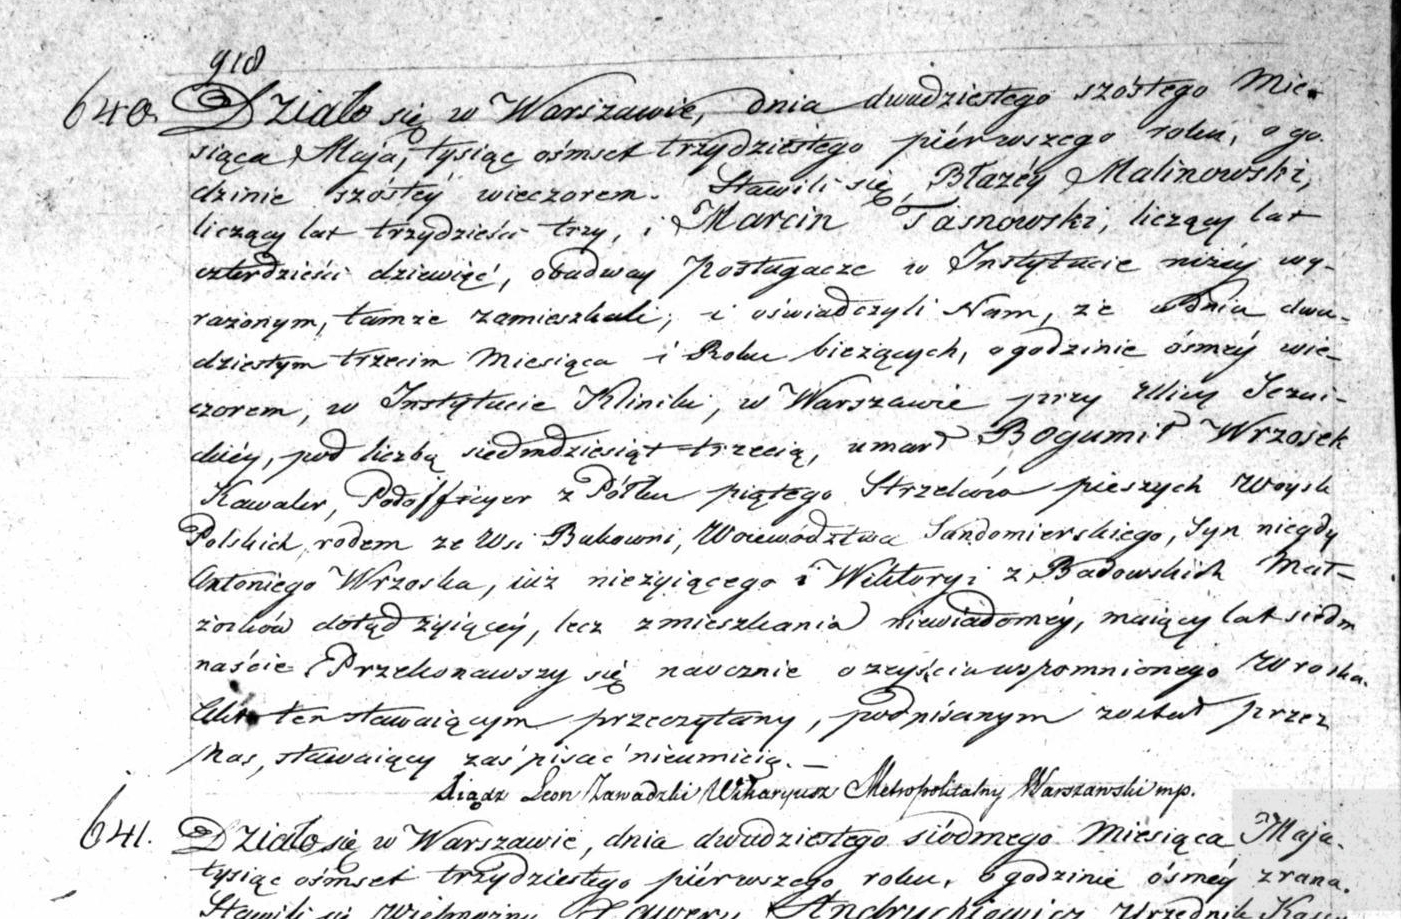 918
640. Działo się w Warszawie, dnia dwudziestego szóstego Mie-
siąca Maja, tysiąc ośmset trzydziestego piérwszego roku, o go-
dzinie szóstey wieczorem. Stawili się, Błażéy Malinowski,
liczący lat trzydzieści trzy, i Marcin Jasnowski, liczący lat
czterdzieści dziewięć, obadway posługacze w Instytucie niżéy wy-
rażonym, tamże zamieszkali; i oświadczyli Nam, że w dniu dwu-
dziestym trzecim Miesiąca i Roku bieżących, o godzinie ósméy wie-
czorem, w Instytucie Kliniki, w Warszawie przy Ulicy Jezui-
ckiéy, pod liczbą siedmdziesiąt trzecią, umarł Bogumił Wrzosek
Kawaler, Podofficyer z Półku piątego Strzelców pieszych Woysk
Polskich, rodem ze Wsi Bukowni, Woiewództwa Sandomierskiego, Syn niegdy
Antoniego Wrzoska, iuż nieżyiącego i Wiktoryi z Badowskich Mał-
żonków dotąd żyiącéy, lecz z mieszkania niewiadoméy, maiący lat siedm
naście. Przekonawszy się naocznie o zeyściu wspomnionego Wroska.
Akt ten stawaiącym przeczytany, podpisanym został przez
Nas, stawaiący zaś pisać nieumieią. —
Xiądz Leon Zawadzki Wikaryusz Metropolitalny Warszawski mp.
641. Działo się w Warszawie, dnia dwudziestego siódmego Miesiąca Maja.
tysiąc ośmset trzydziestego piérwszego roku, o godzinie ósméy zrana.
Stawili się Wielmożny Xawery Andrychiewicz Urzędnik